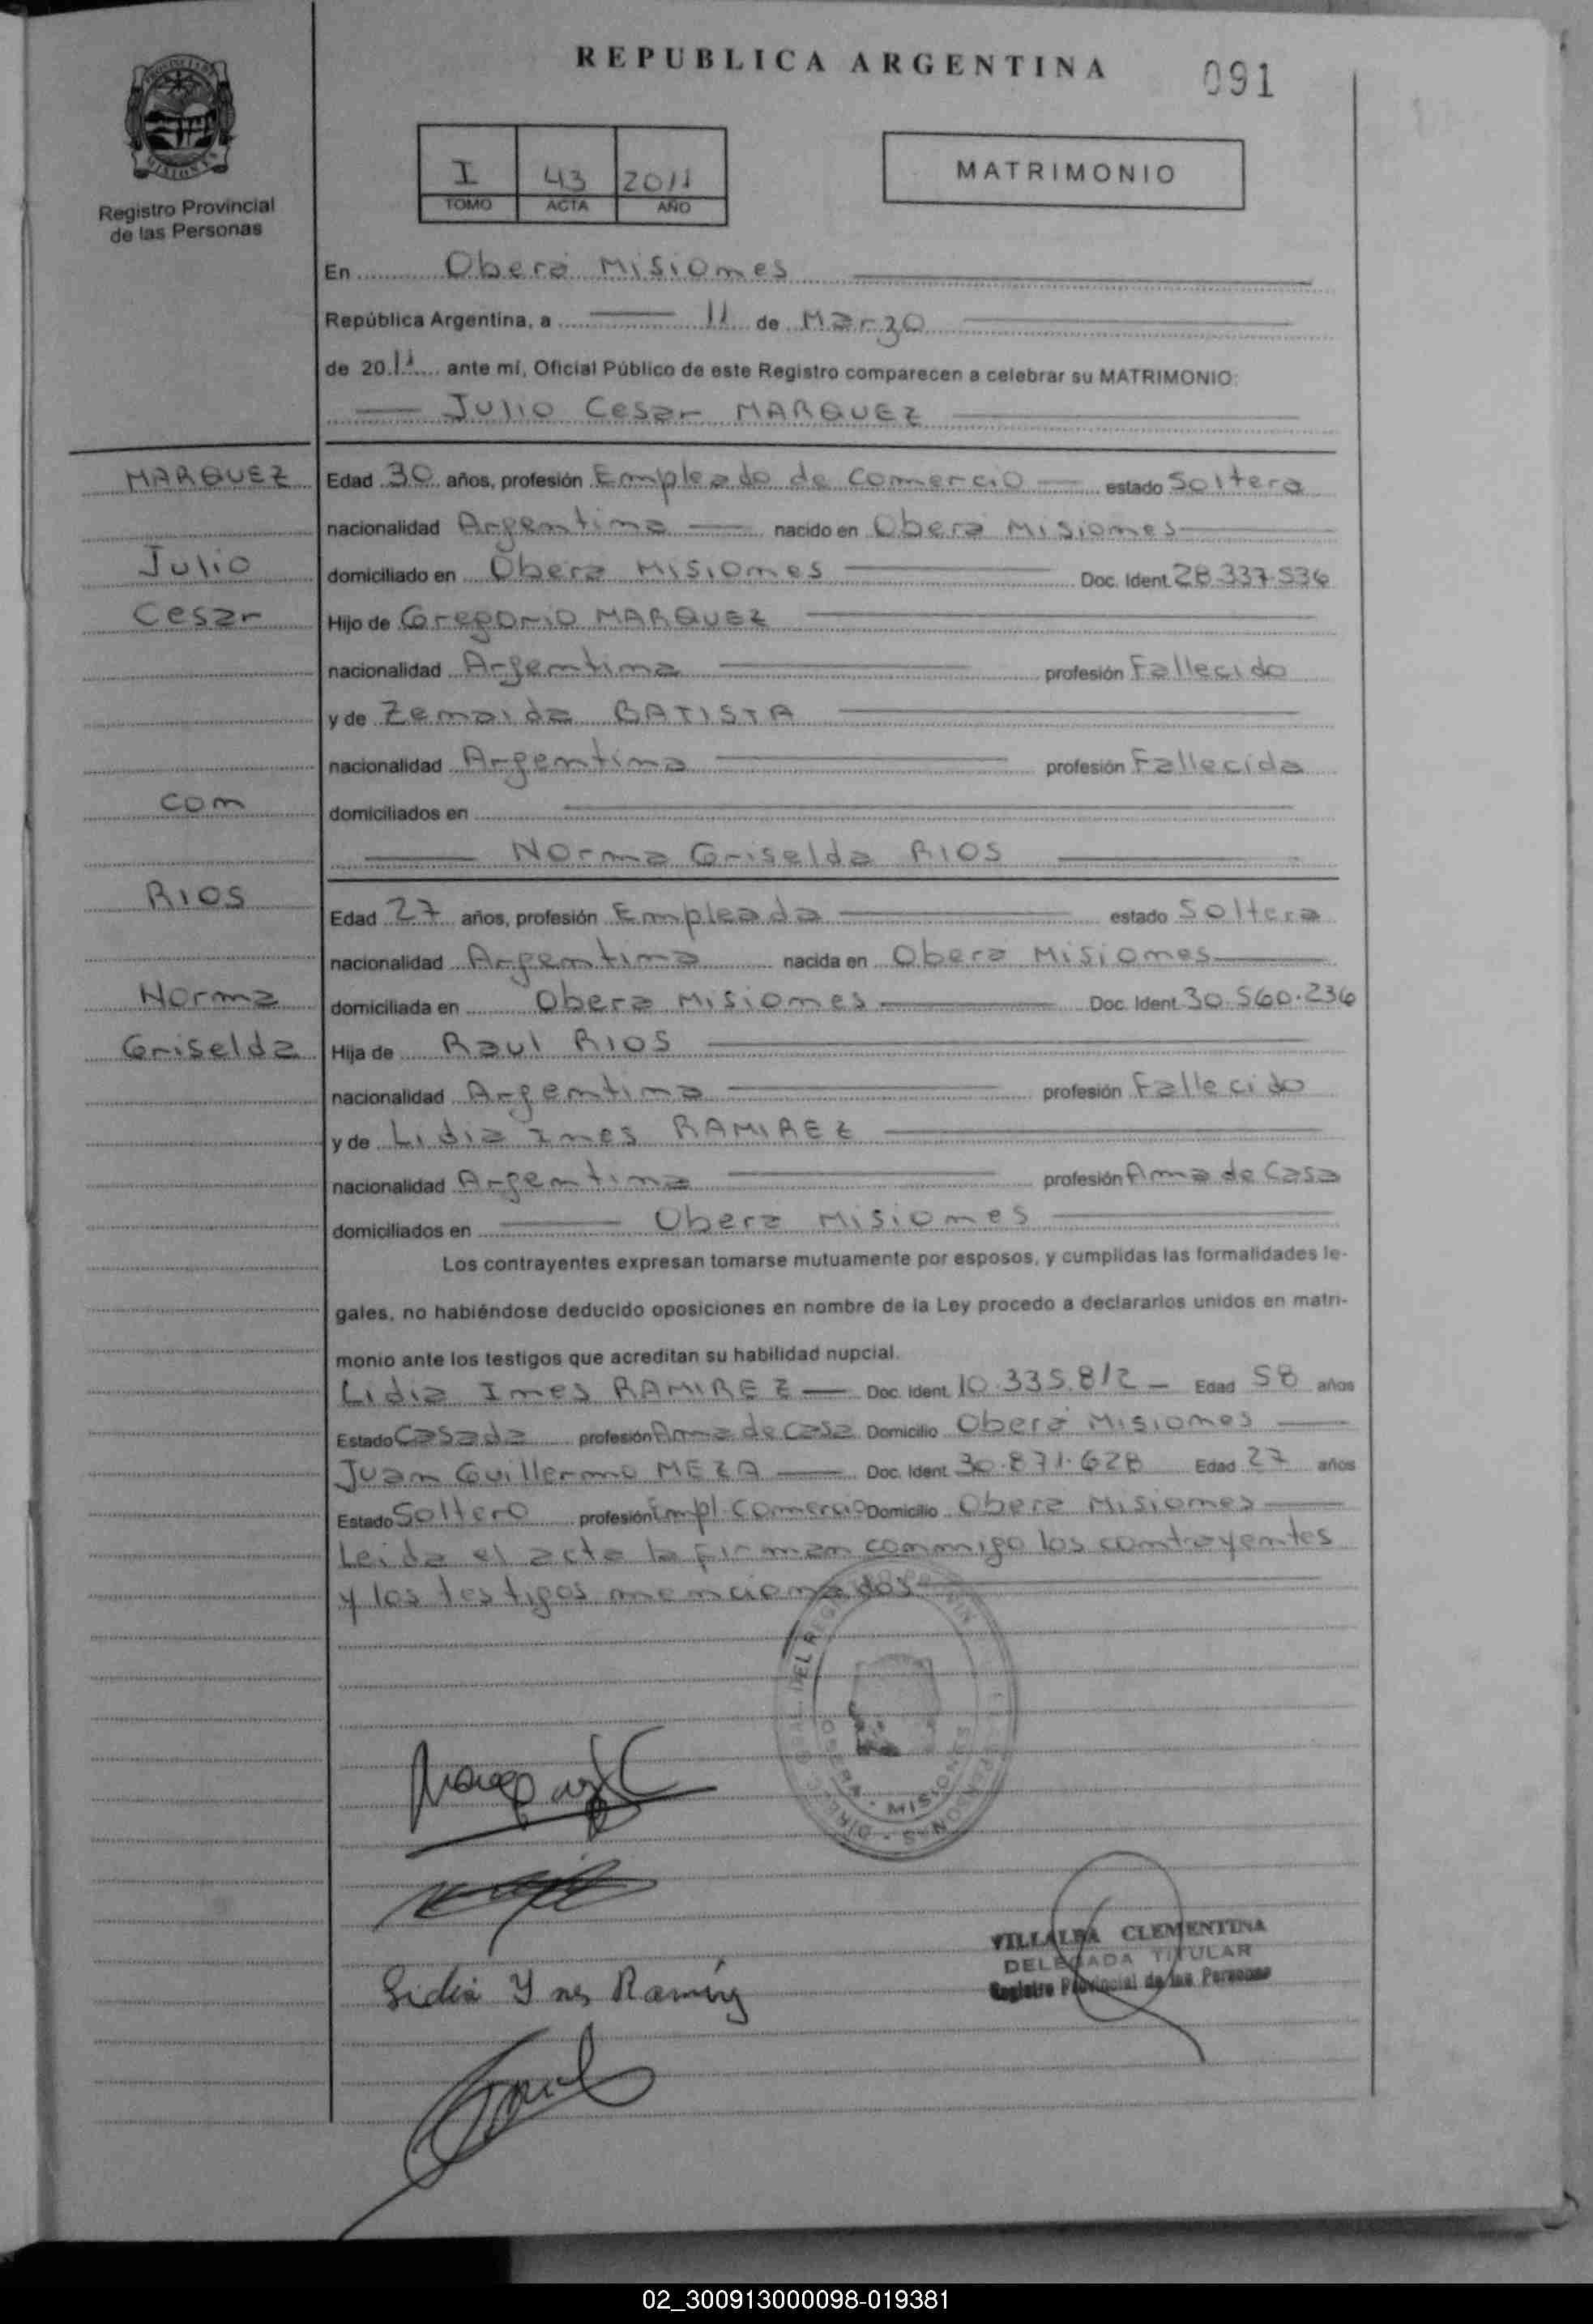 REPUBLICA ARGENTINA
091
PROVINCIA DE
MISIONES
Registro Provincial
de las Personas
I 43 2011
TOMO ACTA AÑO
MATRIMONIO
En Oberá Misiones
República Argentina, a 11 de Marzo
de 2011 ante mí, Oficial Público de este Registro comparecen a celebrar su MATRIMONIO:
Julio Cesar MARQUEZ
MARQUEZ
Julio
Cesar
con
RIOS
Norma
Griselda
Edad 30 años, profesión Empleado de Comercio estado Soltera
nacionalidad Argentina nacido en Obera Misiones
domiciliado en Obera Misiones Doc. Ident. 28.337.536
Hijo de Gregorio MARQUEZ
nacionalidad Argentina profesión Fallecido
y de Zenaida BATISTA
nacionalidad Argentina profesión Fallecida
domiciliados en
Norma Griselda RIOS
Edad 27 años, profesión Empleada estado Soltera
nacionalidad Argentina nacida en Obera Misiones
domiciliada en Obera Misiones Doc. Ident. 30.560.236
Hija de Raul RIOS
nacionalidad Argentina profesión Fallecido
y de Lidia Ines RAMIREZ
nacionalidad Argentina profesión Ama de Casa
domiciliados en Obera Misiones
Los contrayentes expresan tomarse mutuamente por esposos, y cumplidas las formalidades le-
gales, no habiéndose deducido oposiciones en nombre de la Ley procedo a declararlos unidos en matri-
monio ante los testigos que acreditan su habilidad nupcial.
Lidia Ines RAMIREZ Doc. Ident. 10.335.812 Edad 58 años
Estado Casada profesión Ama de Casa Domicilio Oberá Misiones
Juan Guillermo MEZA Doc. Ident. 30.871.628 Edad 27 años
Estado Soltero profesión Empl. Comercio Domicilio Obera Misiones
Leida el acta la firman conmigo los contrayentes
y los testigos mencionados
MISIONES
Lidia Ynes Ramirez
VILLALBA CLEMENTINA
DELEGADA TITULAR
Registro Provincial de las Personas
02_300913000098-019381